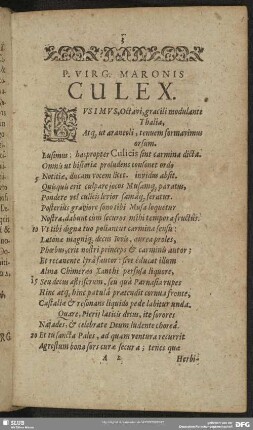 P. VIRG. MARONIS
CULEX.
LUSIMUS, Octavi, gracili modulante
Thalia,
Atq; ut araneoli, tenuem formavimus
orsum.
Lusimus: hæc propter Culicis sint carmina dicta.
Omnis ut historia præludens consonet ordo
5 Notitiæ, ducum vocem licet. invidus absit.
Quisquis erit culpare jocos Musamq; paratus,
Pondere vel culicis levior famâq; feretur.
Posterius graviore sono tibi Musa loquetur
Nostra, dabunt cum securos mihi tempora fructus.
10 Ut tibi digna tuo poliantur carmina sensu:
Latonæ magniq; decus Jovis, aurea proles,
Phœbus erit nostri princeps & carminis autor;
Et recanente lyrâ fautor: sive educat illum
Alma Chimæreo Xanthi perfusa liquore,
15 Seu decus astrigerum, seu quâ Parnasia rupes
Hinc atq; hinc patulâ præcudit cornua fronte,
Castaliæ & resonans liquido pede labitur unda.
Quare, Pierii laticis decus, ite sorores
Naiades, & celebrate Deum ludente choreâ.
20 Et tu sancta Pales, ad quam ventura recurrit
Agrestum bona sors curæ secura; tenes quæ
A 2 Herbi-